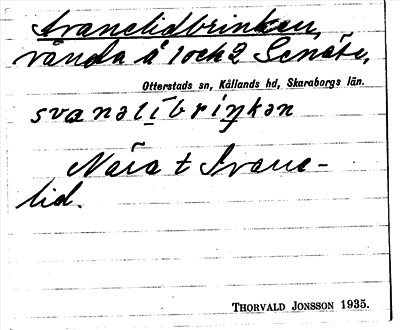 Svanelidbrinken,
vända å 1 och 2 Senäte,
Otterstads sn, Kållands hd, Skaraborgs län.
svanəlìbriŋkən
Nära t Svane-
lid.
THORVALD JONSSON 1935.